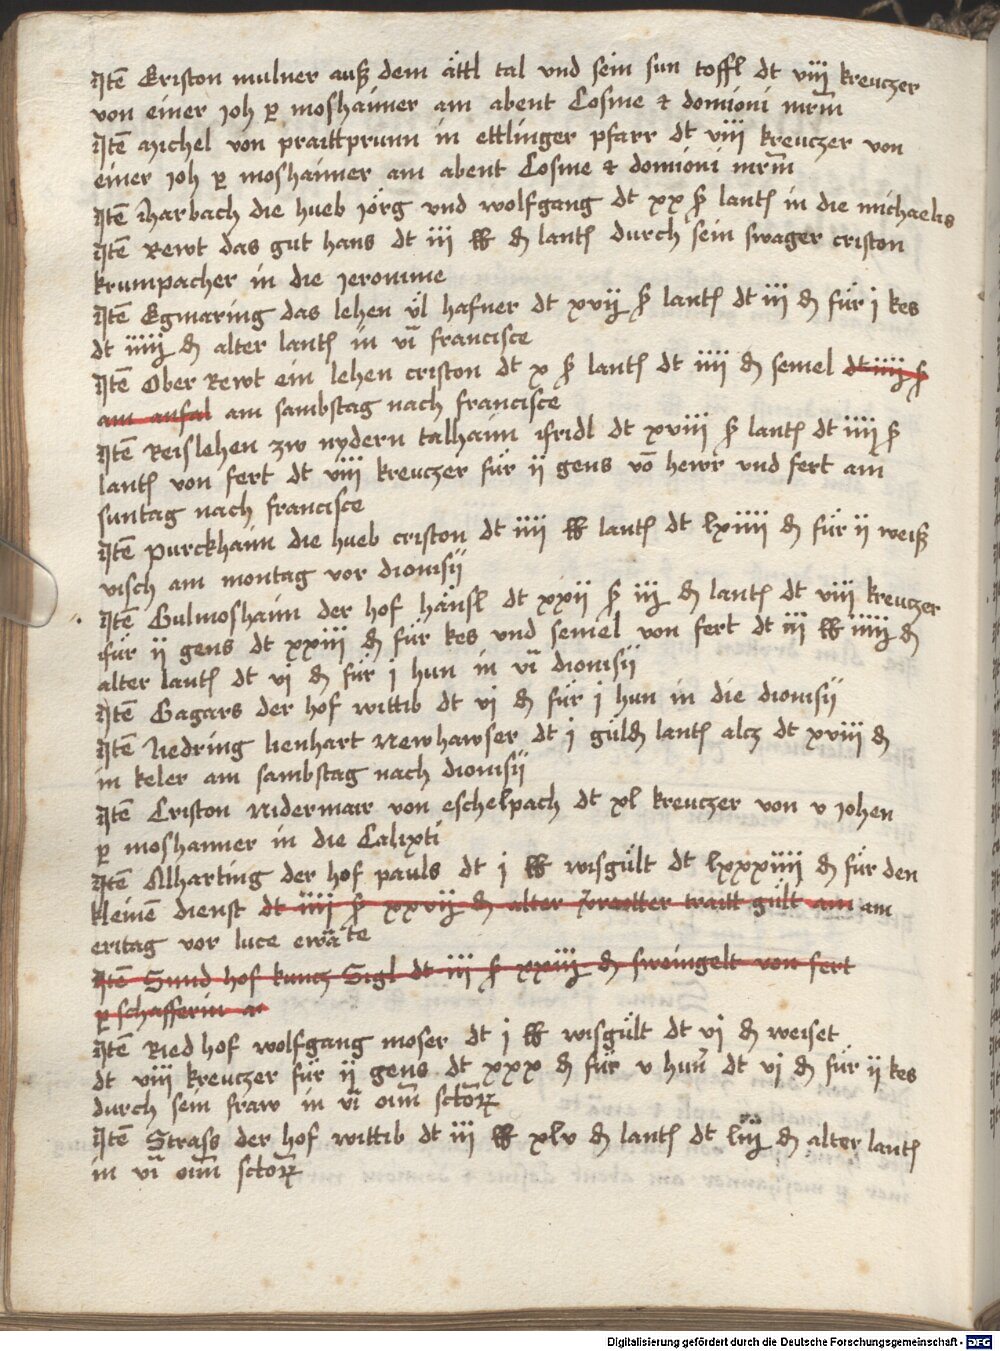 Itē Criston mulner auß dem ättl tal vnd sein sun toffl dt viij kreuczer
von einer joh p moshaimer am abent Cosme et domioni mrm̄
Itē Michel von praittprunn in ettlinger pfarr dt viii kreuczer von
einer joh p moshaimer am abent Cosme et domioni mrm̄
Itē Harbach die hueb jörg vnd wolfgang dt xx ß lantß in die michaelis
Itē Rewt das gut hans dt iij lb d lantß durch sein swager criston
krumpacher in die jeronime
Itē Egmaring das lehen vl hafner dt xvij ß lantß dt iij d für j kes
dt iiij d alter lantß in vī francisce
Itē Ober Rewt ein lehen criston dt x ß lantß dt iiij d semel dt iiij ß
am anfal am sambstag nach francisce
Itē Reislehen zw nydern talhaim ifridl dt xviii ß lantß dt iiij ß
lantß von fert dt viii kreuczer für ij gens vō hewr vnd fert am
suntag nach francisce
Itē purckhaim die hueb criston dt iiij lb lantß dt lxiiij d für ij weiß
visch am montag vor dionisij
Itē Gulmoshaim der hof hänsl dt xxij ß iij d lantß dt viii kreuczer
für ij gens dt xxiii d für kes vnd semel von fert dt iij lb iiij d
alter lantß dt vj d für j hun in vī dionisij
Itē Gagars der hof wittib dt vj d für j hun in die dionisij
Itē Nedring lienhart Newhawser dt j güld lantß alcz dt xviii d
in keler am sambstag nach dionisij
Itē Criston Nidermair von eschelpach dt xl kreuczer von v johen
p moshaimer in die Calixti
Itē Alharting der hof pauls dt j lb wisgült dt lxxxiiij d für den
kleinē dienst dt iiij ß xxvij d alter traitt gült am am
eritag vor luce ewāte
Itē Sund hof kuncz Sigl dt iii ß xxiij d sweingelt von fert
p schafferin a
Itē Ried hof wolfgang moser dt j lb wisgült dt vj d weiset
dt viii kreuczer für ij gens dt xxx d für v hun̄ dt vj d für ij kes
durch sein fraw in vī oim̄ sctoꝝ
Itē Strass der hof wittib dt iii lb xlv d lantß dt d alter lantß
in vī oim̄ sctoꝝ
Digitalisierung gefördert durch die Deutsche Forschungsgemeinschaft - DFG